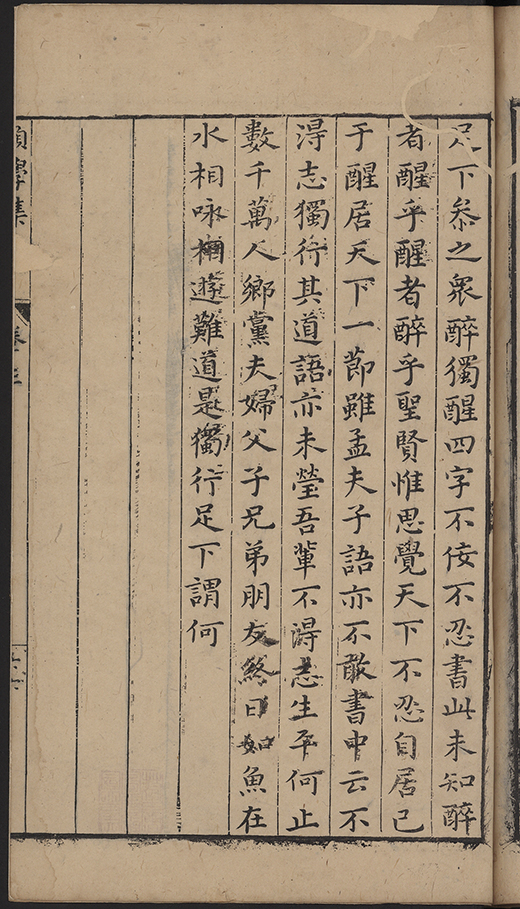 足下叅之衆醉獨醒四字不佞不忍書此未知醉
者醒乎醒者醉乎聖賢惟思覺天下不忍自居已
于醒居天下一節雖孟夫子語亦不敢書中云不
得志獨行其道語亦未瑩吾輩不得志生平何止
數千萬人鄉黨夫婦父子兄弟朋友終日如魚在
水相咏相遊難道是獨行足下謂何
學集
卷